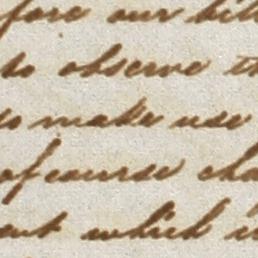 fore our bill
to observe th
to make use
of course cha
ent which is